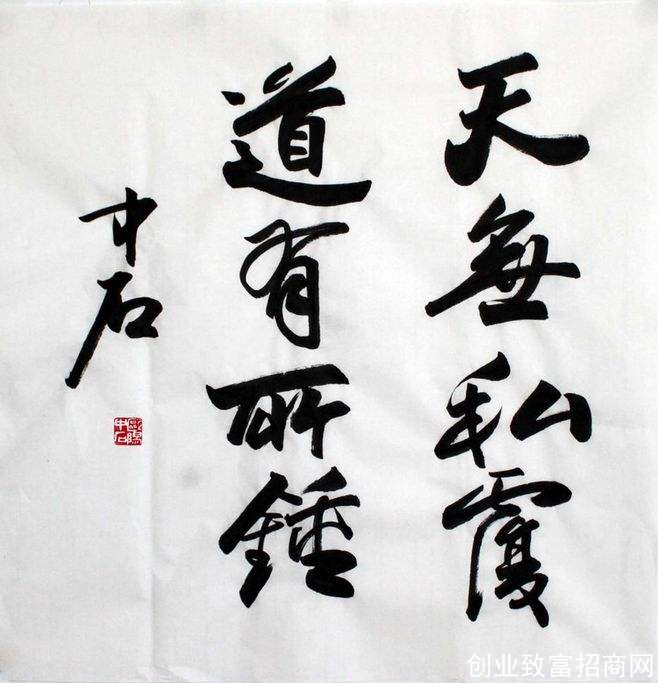 天無私覆
道有所鍾
中石
歐陽中石
创业致富招商网